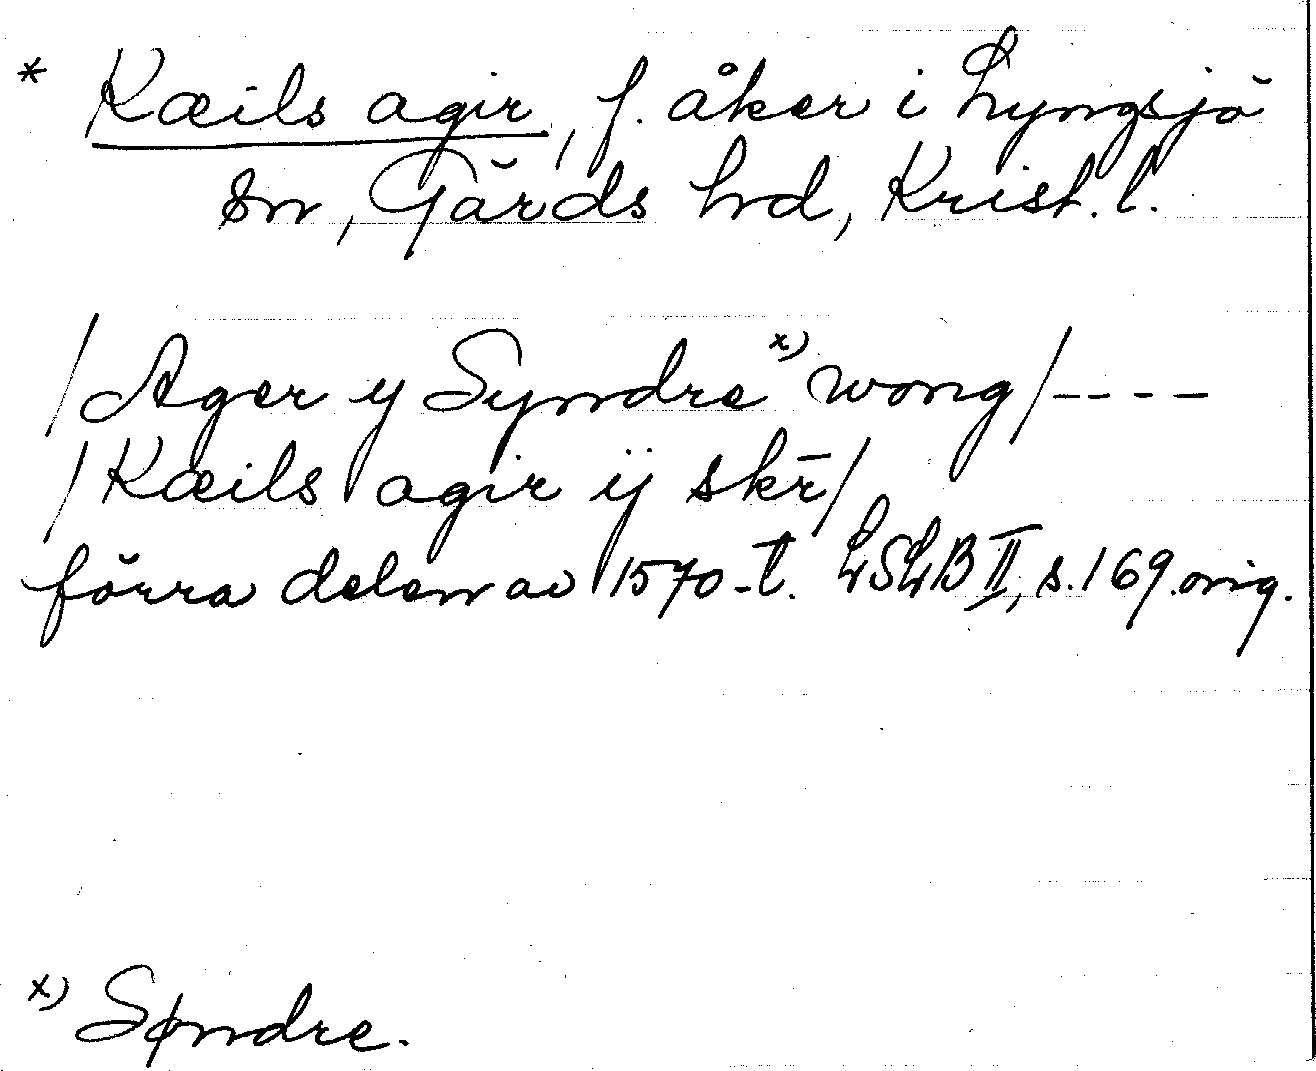 * Kæils agir, f. åker i Lyngsjö
sn, Gärds hrd, Krist. l.
/Ager y Syndre x) wong/----
/Kæils agir ij skr̄/
förra delen av 1570-t. LSLB II, s. 169. orig.
x) Søndre.